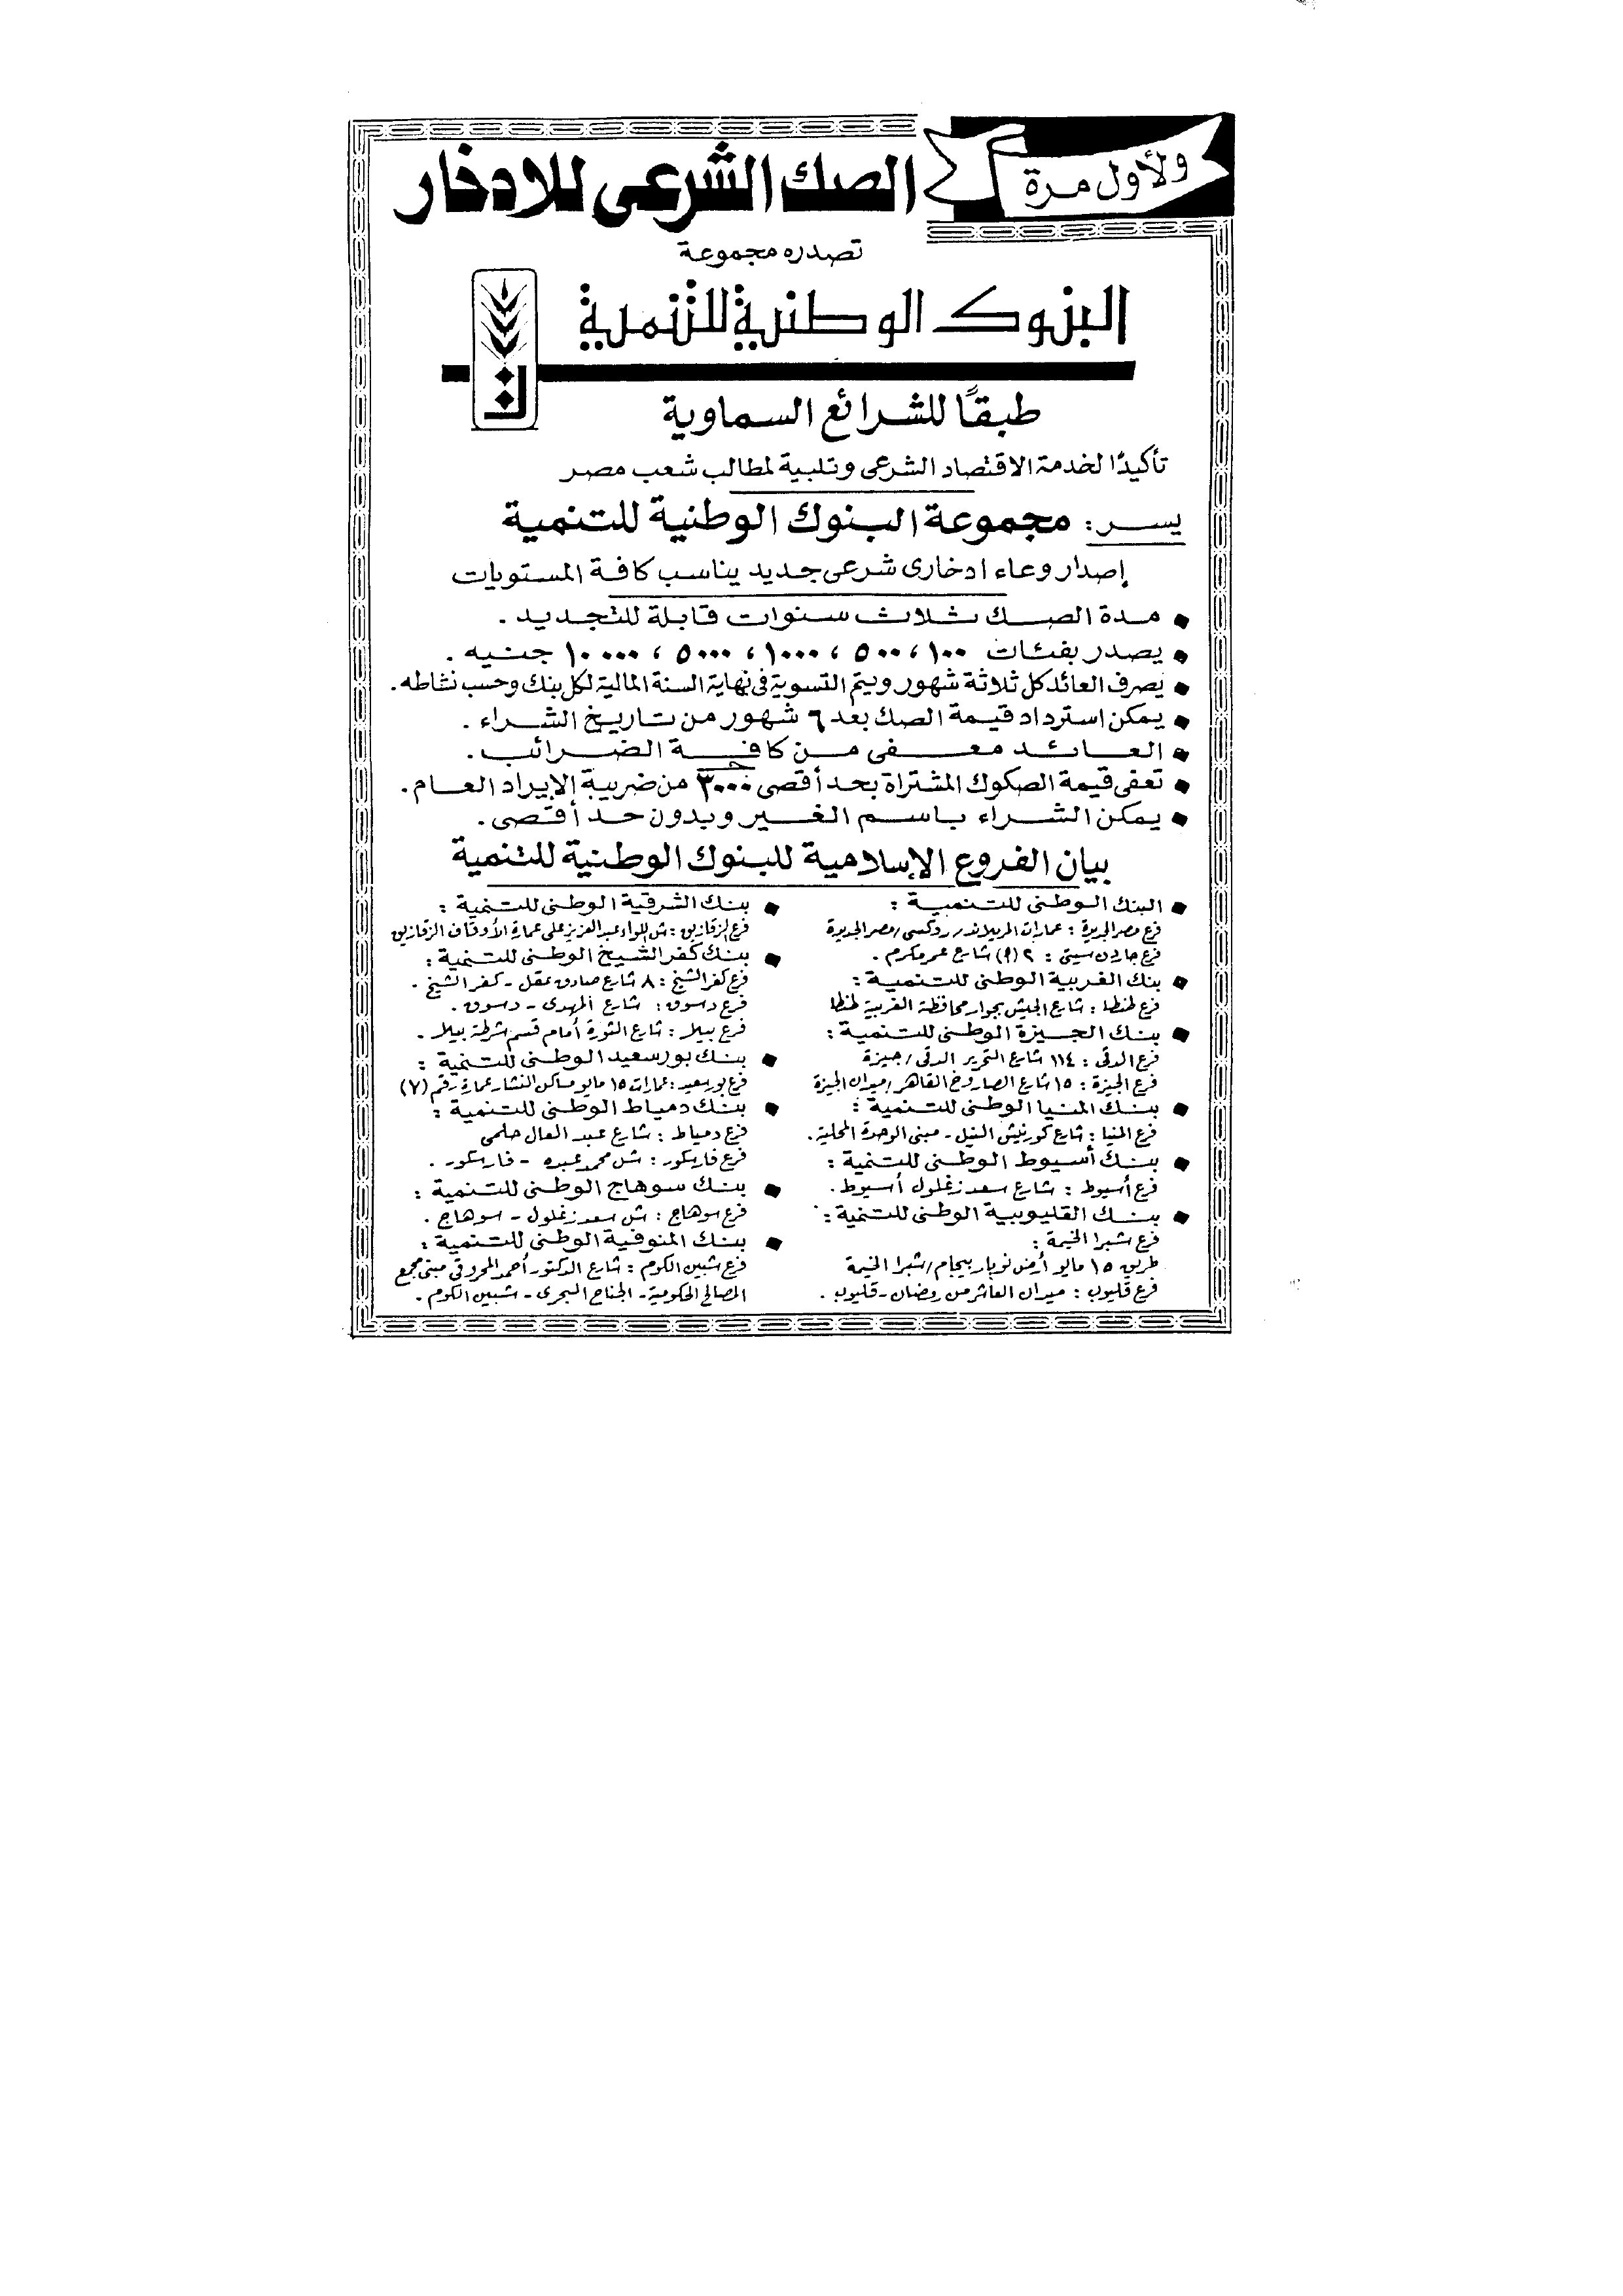 ولأول مرة
الصك الشرعى للادخار
تصدره مجموعة
البنوك الوطنية للتنمية
طبقًا للشرائع السماوية
تأكيدًا لخدمة الاقتصاد الشرعى وتلبية لمطالب شعب مصر
يسر: مجموعة البنوك الوطنية للتنمية
إصدار وعاء ادخارى شرعى جديد يناسب كافة المستويات
مدة الصك ثلاث سنوات قابلة للتجديد .
يصدر بفئات ١٠٠ ، ٥٠٠ ، ١٠٠٠ ، ٥٠٠٠ ، ١٠٠٠٠ جنيه .
يصرف العائد كل ثلاثة شهور ويتم التسوية فى نهاية السنة المالية لكل بنك وحسب نشاطه .
يمكن استرداد قيمة الصك بعد ٦ شهور من تاريخ الشراء .
العائد معفى من كافة الضرائب .
تعفى قيمة الصكوك المشتراة بحد أقصى ٣٠٠٠ جـ من ضريبة الإيراد العام .
يمكن الشراء باسم الغير وبدون حد أقصى .
بيان الفروع الإسلامية للبنوك الوطنية للتنمية
البنك الوطنى للتنمية :
فرع مصر الجديدة : عمارات الميريلاند / روكسى / مصر الجديدة
فرع جاردن سيتى : ٢ (أ) شارع عمر مكرم .
بنك الغربية الوطنى للتنمية :
فرع طنطا : شارع الجيش بجوار محافظة الغربية طنطا
بنك الجيزة الوطنى للتنمية :
فرع الدقى : ١١٤ شارع التحرير الدقى / جيزة
فرع الجيزة : ١٥ شارع الصاروخ القاهر / ميدان الجيزة
بنك المنيا الوطنى للتنمية :
فرع المنيا : شارع كورنيش النيل - مبنى الوحدة المحلية .
بنك أسيوط الوطنى للتنمية :
فرع أسيوط : شارع سعد زغلول أسيوط .
بنك القليوبية الوطنى للتنمية :
فرع شبرا الخيمة :
طريق ١٥ مايو أرض نوبار بيجام / شبرا الخيمة
فرع قليوب : ميدان العاشر من رمضان - قليوب .
بنك الشرقية الوطنى للتنمية :
فرع الزقازيق : ش اللواء عبد العزيز على عمارة الأوقاف الزقازيق
بنك كفر الشيخ الوطنى للتنمية :
فرع كفر الشيخ : ٨ شارع صادق عقل - كفر الشيخ .
فرع دسوق : شارع المهدى - دسوق .
فرع بيلا : شارع الثورة أمام قسم شرطة بيلا .
بنك بورسعيد الوطنى للتنمية :
فرع بورسعيد : عمارات ١٥ مايو مساكن النشار عمارة رقم (٧)
بنك دمياط الوطنى للتنمية :
فرع دمياط : شارع عبد العال حلمى
فرع فارسكور : ش محمد عبده - فارسكور .
بنك سوهاج الوطنى للتنمية :
فرع سوهاج : ش سعد زغلول - سوهاج .
بنك المنوفية الوطنى للتنمية :
فرع شبين الكوم : شارع الدكتور أحمد المحروقى مبنى مجمع
المصالح الحكومية - الجناح البحرى - شبين الكوم .